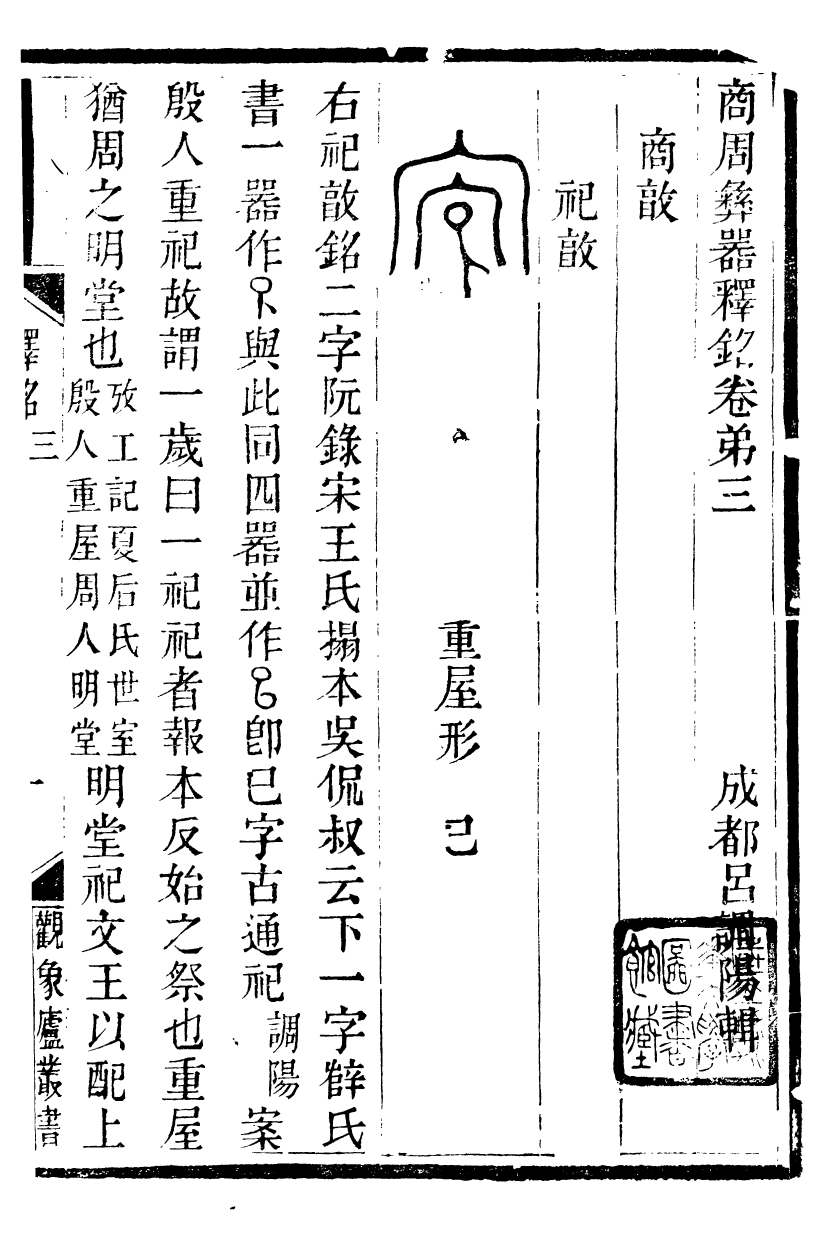 商周彝器釋銘卷弟三　成都呂調陽輯
商敦
祀敦
重屋形　己
右祀敦銘二字阮錄宋王氏搨本吳侃叔云下一字薛氏
書一器作與此同四器並作卽巳字古通祀調陽案
殷人重祀故謂一歲曰一祀祀者報本反始之祭也重屋
猶周之明堂也攷工記夏后氏世室殷人重屋周人明堂明堂祀文王以配上
釋銘三　一　觀象廬叢書